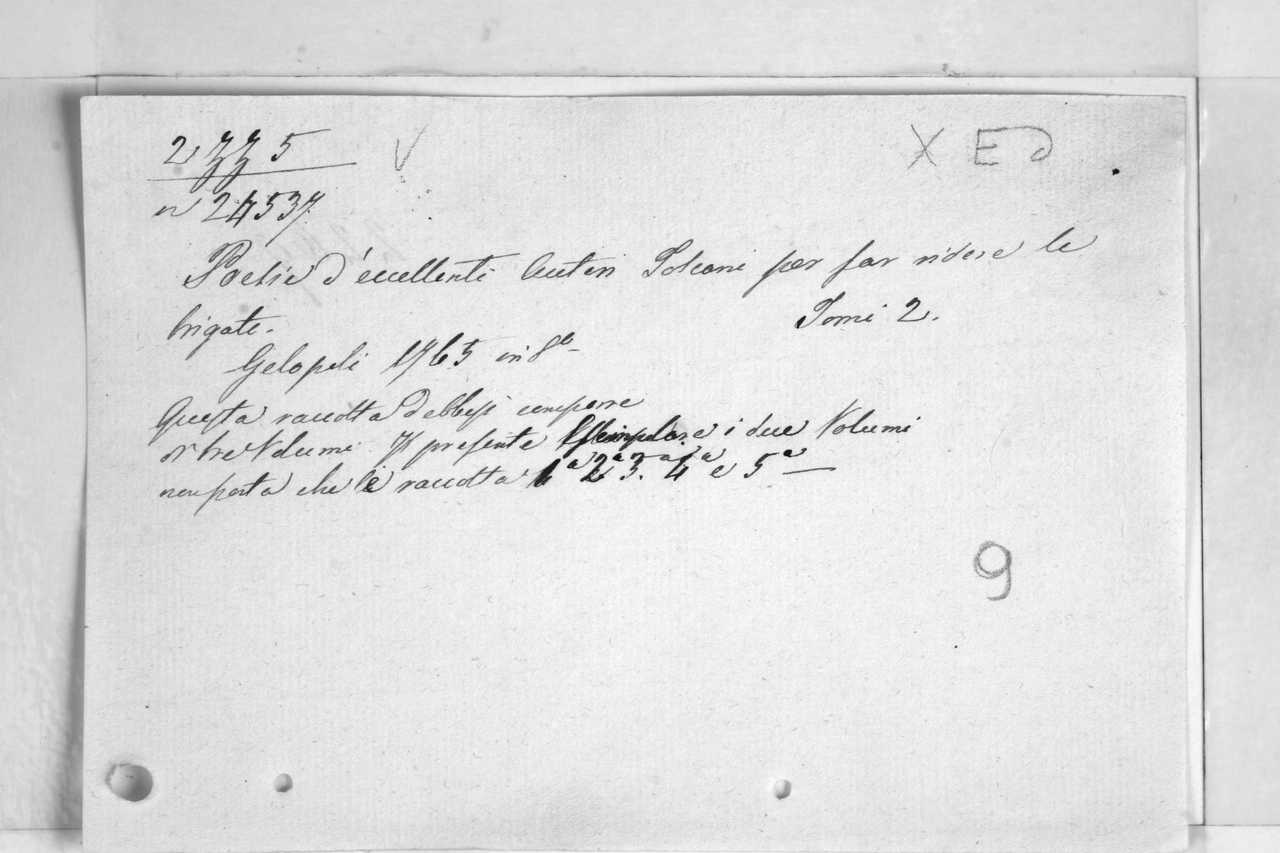 2775 V X ED
n 24537
Poesie d'eccellenti Autori Toscani per far ridere le
brigate. Tomi 2.
Gelopoli 1765 in 8º
Questa raccolta debbesi comporre
di tre Volumi. Il presente Esemplare i due Volumi
non porta che è raccolta 1ª 2ª 3ª 4ª e 5ª
9